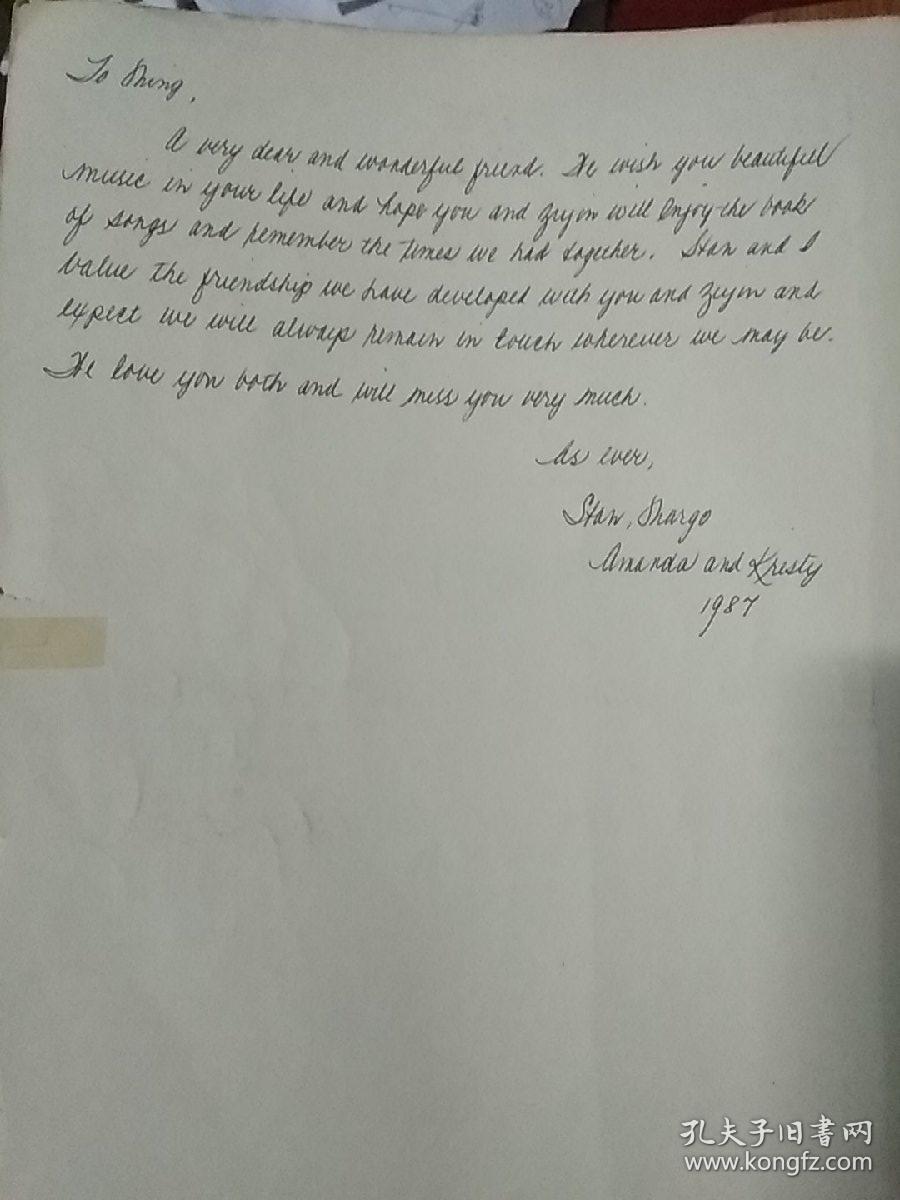 To Ming,
A very dear and wonderful friend. We wish you beautiful
music in your life and hope you and Ziyin will enjoy the book
of songs and remember the times we had together. Stan and I
value the friendship we have developed with you and Ziyin and
expect we will always remain in touch wherever we may be.
We love you both and will miss you very much.
As ever,
Stan, Margo
Amanda and Kristy
1987
孔夫子旧書网
www.kongfz.com